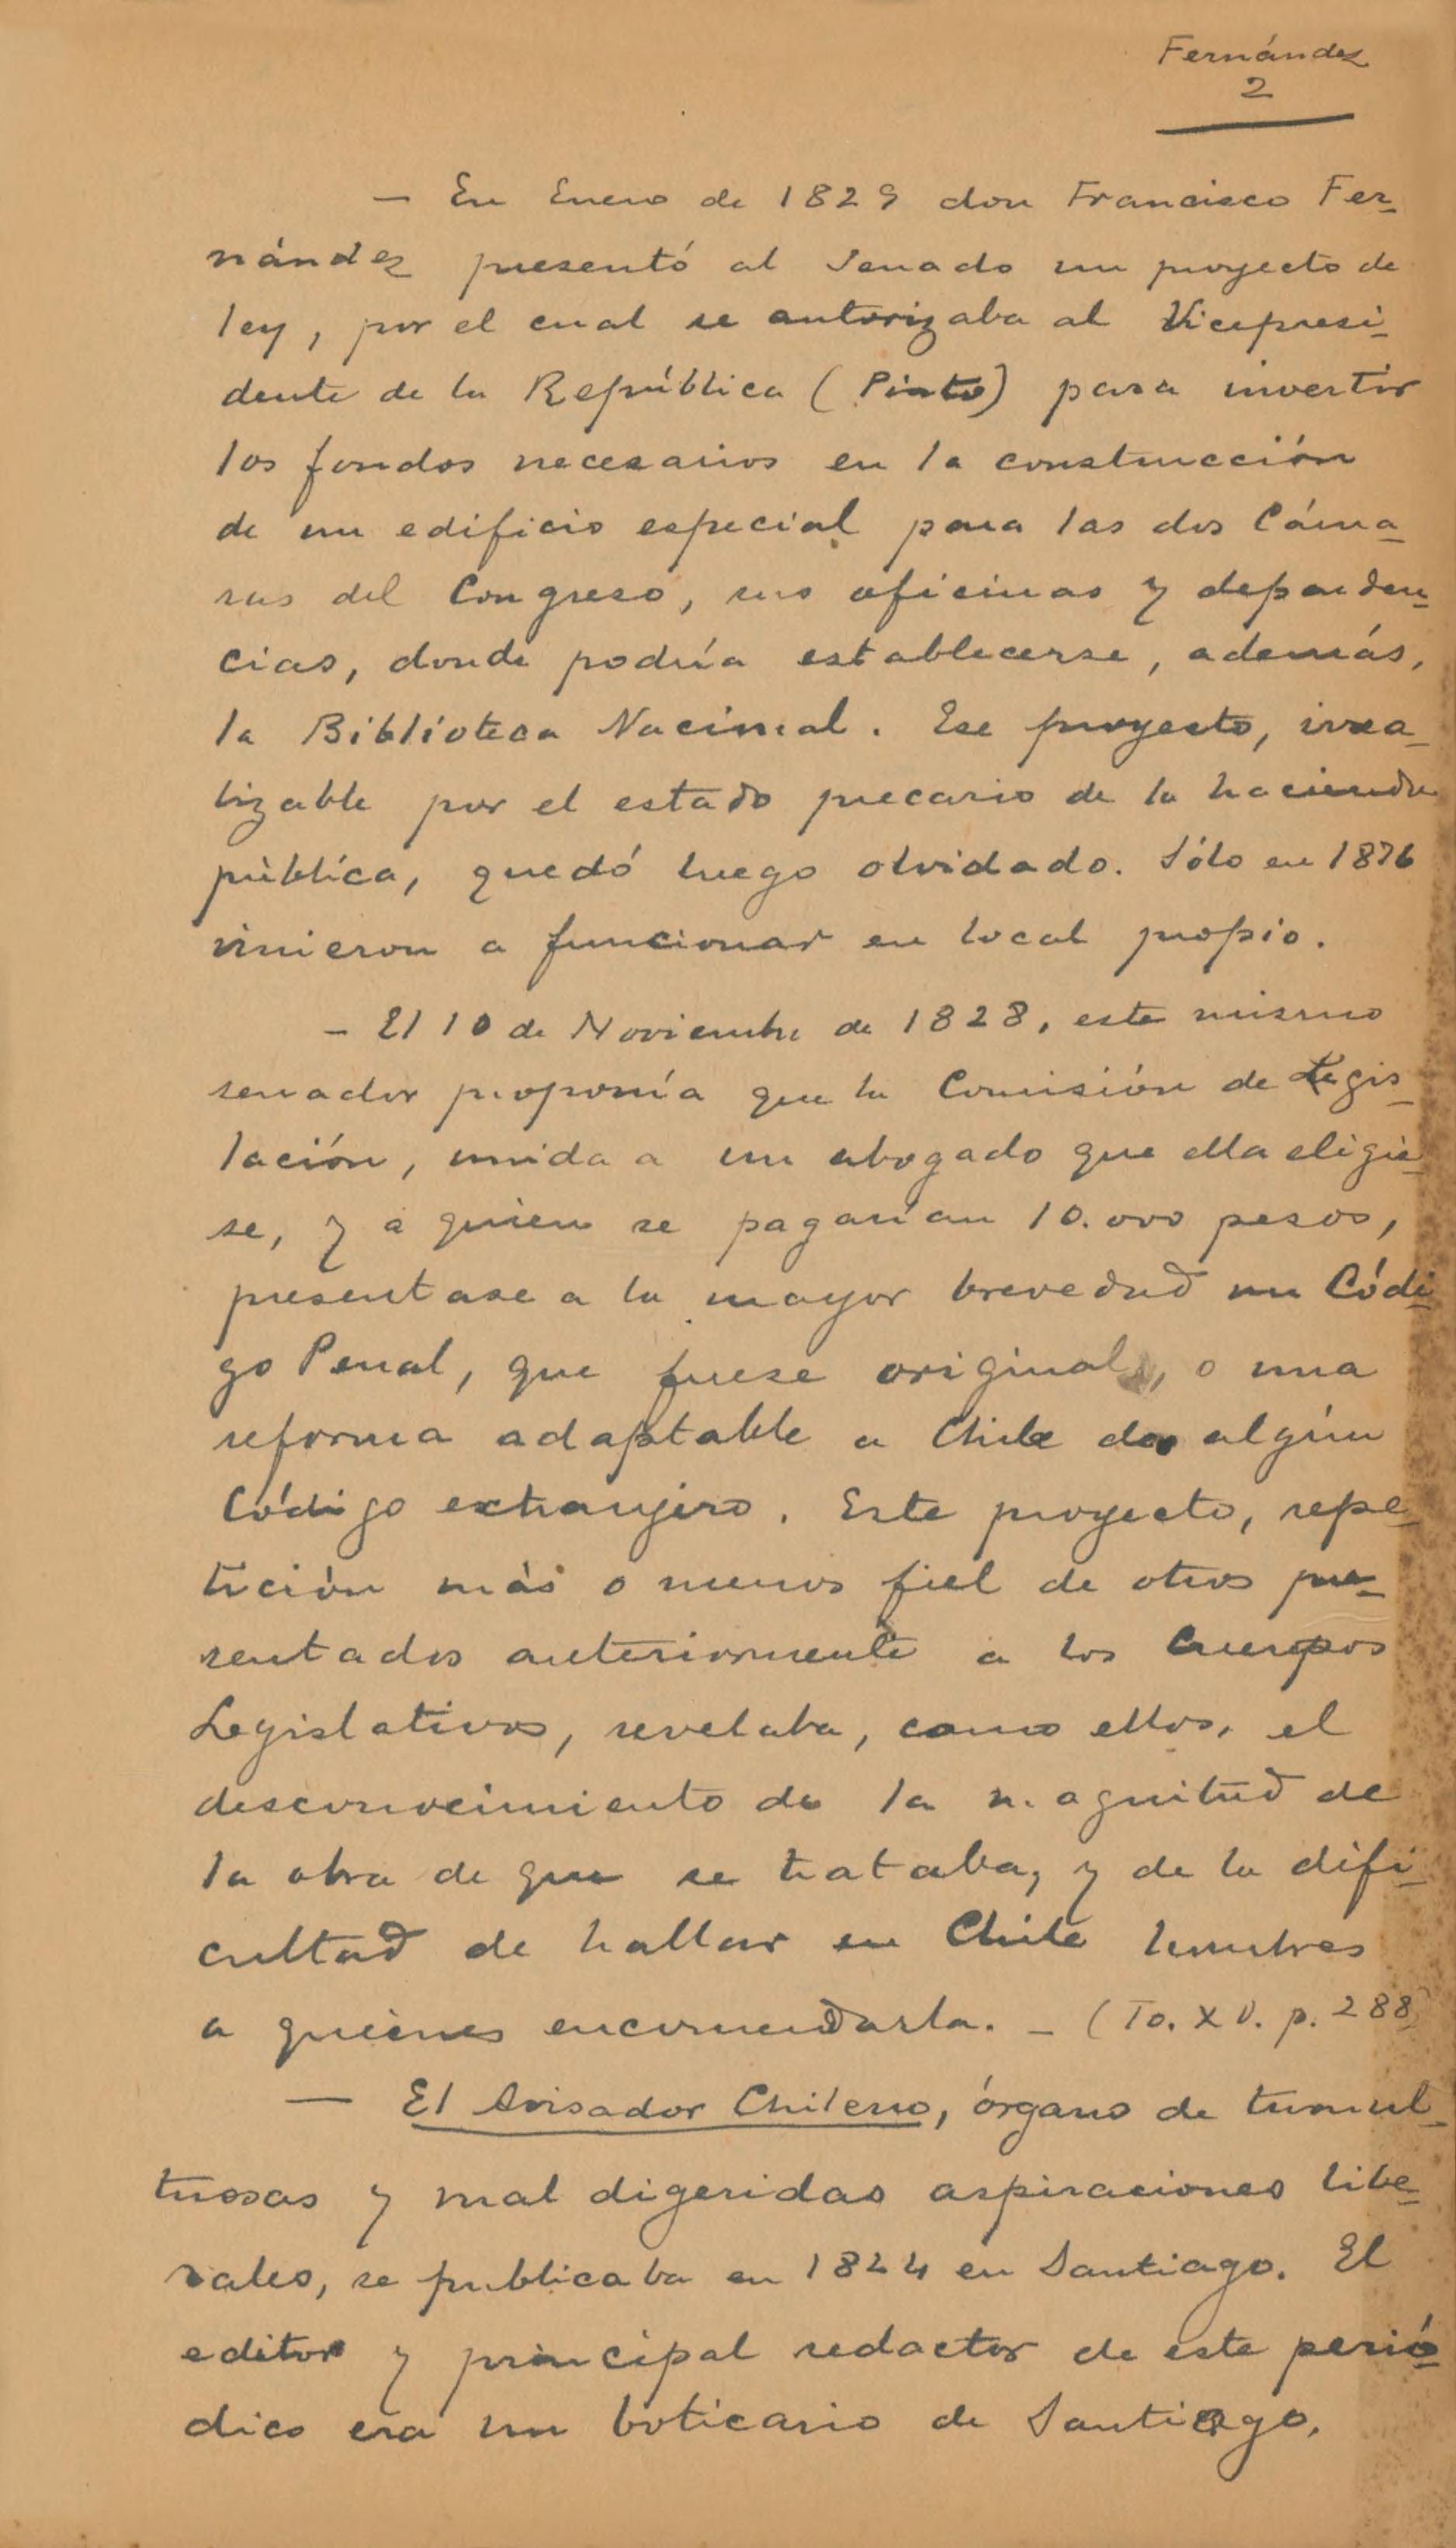 Fernández
2
— En Enero de 1829 don Francisco Fer-
nández presentó al Senado un proyecto de
ley, por el cual se autorizaba al Vicepresi-
dente de la República (Pinto) para invertir
los fondos necesarios en la construcción
de un edificio especial para las dos Cáma-
ras del Congreso, sus oficinas y dependen-
cias, donde podría establecerse, además,
la Biblioteca Nacional. Ese proyecto, irrea-
lizable por el estado precario de la hacienda
pública, quedó luego olvidado. Sólo en 1876
vinieron a funcionar en local propio.
– El 10 de Noviembre de 1828, este mismo
senador proponía que la Comisión de Legis-
lación, unida a un abogado que ella eligie-
se, y a quien se pagarían 10.000 pesos,
presentase a la mayor brevedad un Códi-
go Penal, que fuese original, o una
reforma adaptable a Chile de algún
Código extranjero. Este proyecto, repe-
tición más o menos fiel de otros pre-
sentados anteriormente a los Cuerpos
Legislativos, revelaba, como ellos, el
desconocimiento de la magnitud de
la obra de que se trataba, y de la difi-
cultad de hallar en Chile hombres
a quienes encomendarla. – (To. XV. p. 288)
— El Avisador Chileno, órgano de tumul-
tuosas y mal digeridas aspiraciones libe-
rales, se publicaba en 1824 en Santiago. El
editor y principal redactor de este perió-
dico era un boticario de Santiago,